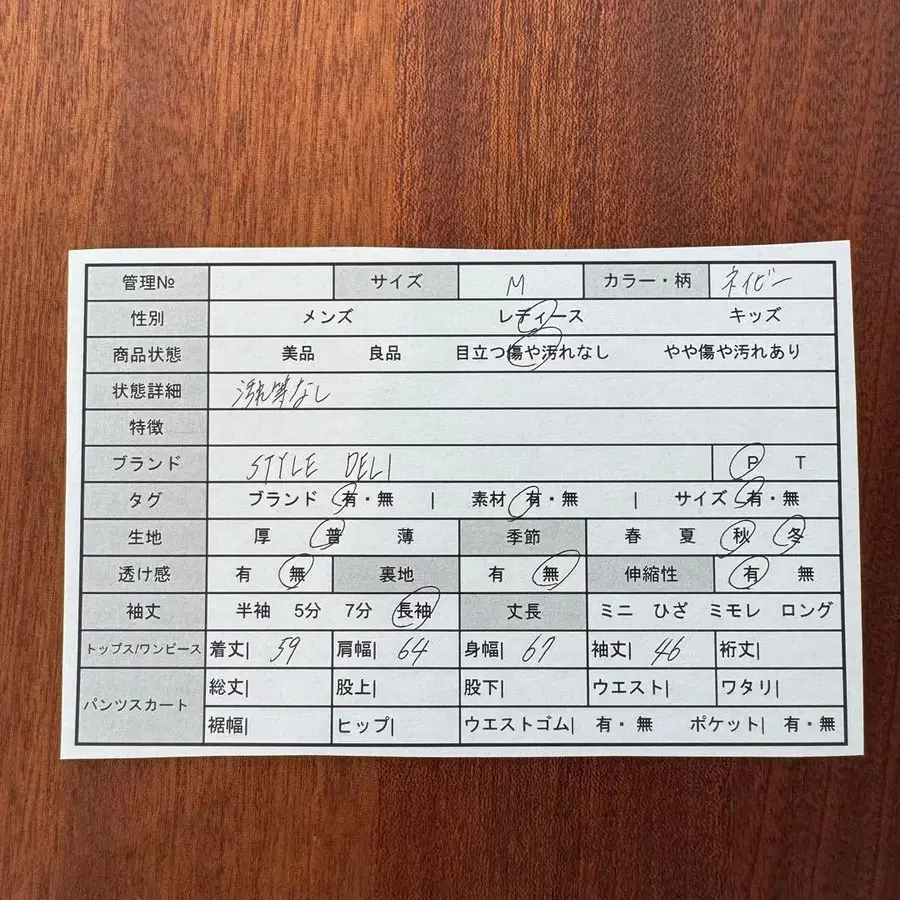 管理№ サイズ M カラー・柄 ネイビー
性別 メンズ レディース キッズ
商品状態 美品 良品 目立つ傷や汚れなし やや傷や汚れあり
状態詳細 汚れ等なし
特徴
ブランド STYLE DELI P T
タグ ブランド 有・無 | 素材 有・無 | サイズ 有・無
生地 厚 普 薄 季節 春 夏 秋 冬
透け感 有 無 裏地 有 無 伸縮性 有 無
袖丈 半袖 5分 7分 長袖 丈長 ミニ ひざ ミモレ ロング
トップス/ワンピース 着丈| 59 肩幅| 64 身幅| 67 袖丈| 46 裄丈|
パンツスカート 総丈| 股上| 股下| ウエスト| ワタリ|
裾幅| ヒップ| ウエストゴム| 有・無 ポケット| 有・無